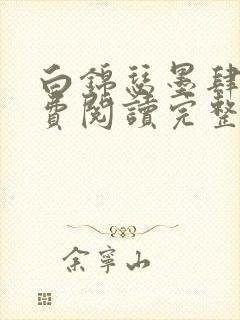 白錦瑟墨肆
費閱讀完整
余寧山